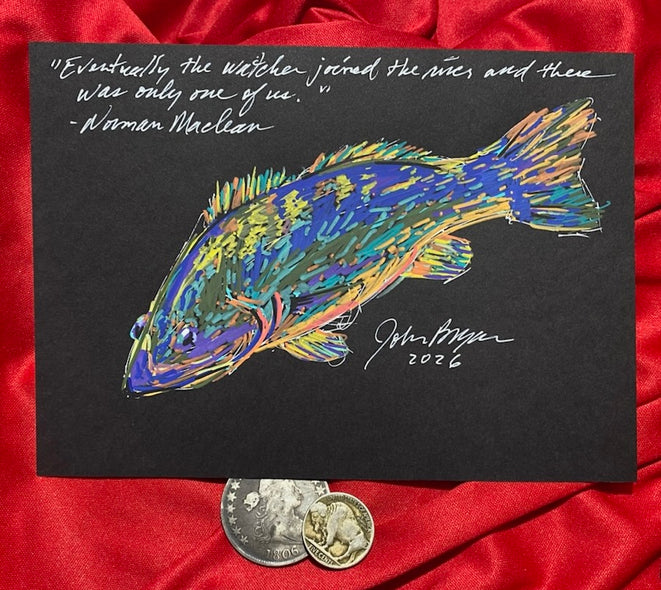 "Eventually the watcher joined the river and there
was only one of us."
-Norman Maclean
John Bryan
2026
1806